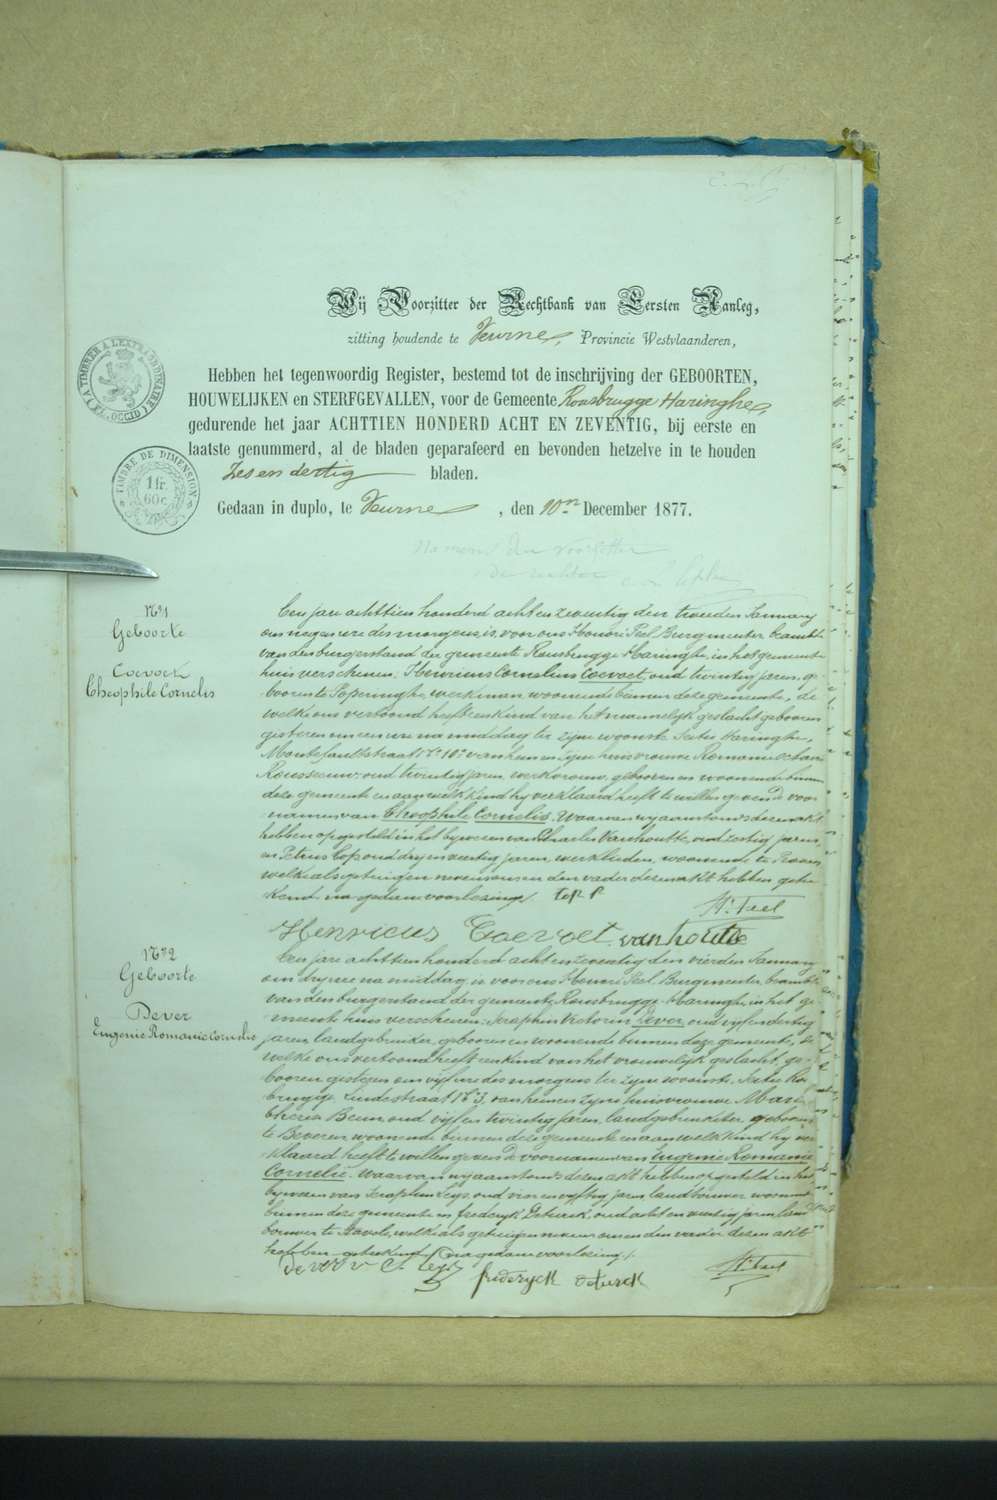 Wij Voorzitter der Rechtbank van Eersten Aanleg,
zitting houdende te Veurne, Provincie Westvlaanderen,
Hebben het tegenwoordig Register, bestemd tot de inschrijving der GEBOORTEN,
HOUWELIJKEN en STERFGEVALLEN, voor de Gemeente Rousbrugge Haringhe,
gedurende het jaar ACHTTIEN HONDERD ACHT EN ZEVENTIG, bij eerste en
laatste genummerd, al de bladen geparafeerd en bevonden hetzelve in te houden
Zes en dertig bladen.
Gedaan in duplo, te Veurne, den 10en December 1877.
TIMBRE DE DIMENSION
1 fr.
60 c.
Namens den voorzitter
de rechter
N° 1
Geboorte
Coevoet
Theophile Cornelis
Een jare achttien honderd acht en zeventig den tweeden January
om negen ure des morgens, is voor ons Honoré Peel Burgmeester beambte
van den burgerstand der gemeente Rousbrugge Haringhe, in het gemeente
huis verschenen, Henricus Cornelius Coevoet, oud twintig jaren, ge-
boren te Poperinghe, werkman, woonende binnen deze gemeente, de
welke ons vertoond heeft een kind van het mannelijk geslacht geboren
gisteren om een ure na middag ter zijne woonste Sectie Haringhe,
straat N° 10 van hem en zijne huisvrouw Romanie
Rousseeuw, oud twintig jaren, werkvrouw, geboren en woonende binnen
deze gemeente en aan welk kind hy verklaard heeft te willen geven de voor
namen van Theophile Cornelis. Waarvan wy aanstonds dezen akt
hebben opgesteld in het bywezen van Charles Vanhoutte, oud zestig jaren,
en Petrus Top, oud dry en veertig jaren, werklieden, woonende te
welke als getuigen nevens ons en den vader dezen akt hebben getee-
kend, na gedane voorlezing. top P H. Peel
Henricus Coevoet vanhoutte
N° 2
Geboorte
Dever
Eugenie Romanie Cornelie
Een jare achttien honderd acht en zeventig den vierden January
om dry ure na middag, is voor ons Honoré Peel Burgmeester beambte
van den burgerstand der gemeente Rousbrugge Haringhe, in het ge-
meente huis verschenen, Seraphin Victorin Dever, oud vijf en dertig
jaren, landgebruiker, geboren en woonende binnen deze gemeente, de
welke ons vertoond heeft een kind van het vrouwelijk geslacht, ge-
boren gisteren om vijf ure des morgens ter zijne woonste, Sectie Rous-
brugge Lindestraat N° 3, van hem en zijne huisvrouw Marie
Theresia Beun, oud vijf en twintig jaren, landgebruikster, geboren
te Beveren, woonende binnen deze gemeente en aan welk kind hy ver-
klaard heeft te willen geven de voornamen van Eugenie Romanie
Cornelie. Waarvan wy aanstonds dezen akt hebben opgesteld in het
bywezen van Seraphin Leys, oud vier en vyftig jaren, landbouwer, woonende
binnen deze gemeente en Frederyk Deturck, oud acht en veertig jaren, land-
bouwer te Stavele, welke als getuigen nevens ons en den vader dezen akt
hebben geteekend, na gedane voorlezing.
Dever v C. Leys frederyck deturck H. Peel